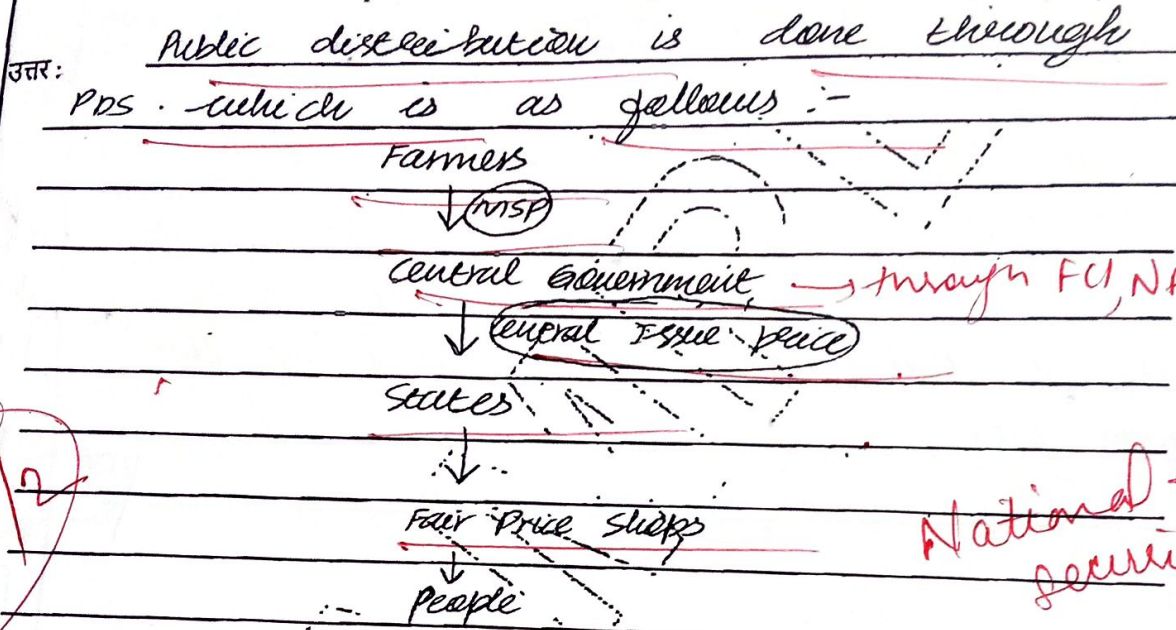 Public distribution is done through
उत्तर:
PDS. which is as follows :-
Farmers
↓ MSP
Central Government → through FCI,
↓ Central Issue price
States
↓
2
Fair Price Shops
National
↓
People